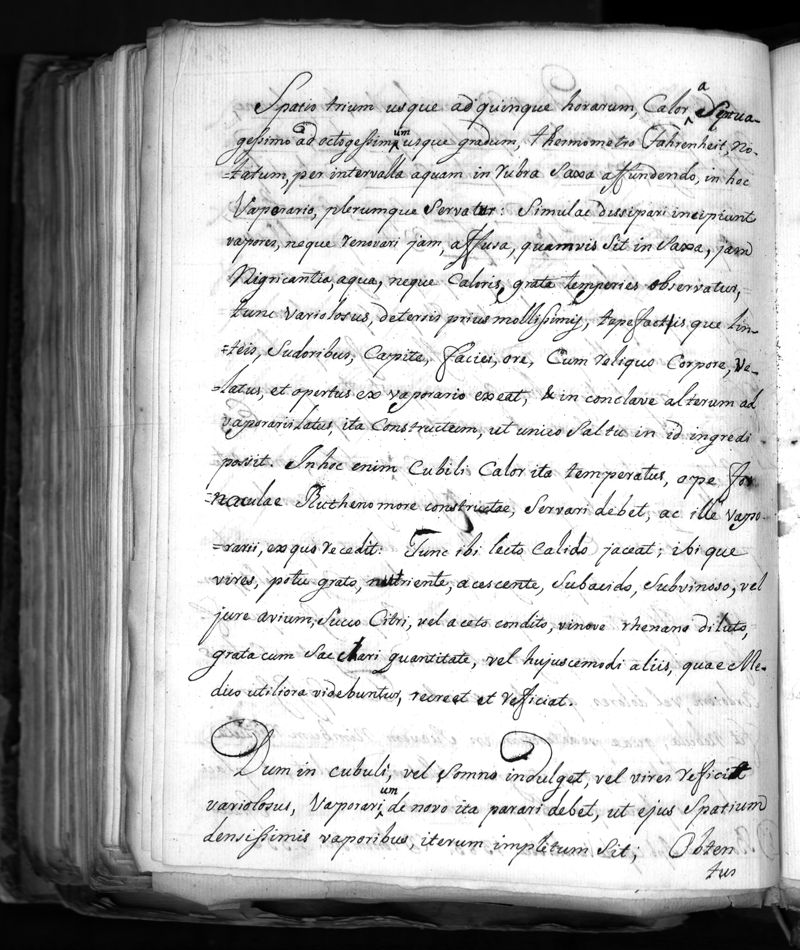 Spatio trium usque ad quinque horarum, Calor a Septua-
gessimo ad octogessimum usque gradum, thermometro Fahrenheit, no-
=tatum, per intervalla aquam in rubra Saxa affundendo, in hoc
Vaporario, plerumque Servatur: Simulac dissipari incipiunt
vapores, neque renovari jam, affusa, quamvis Sit in Saxa, jam
Nigricantia, aqua, neque Caloris, grata temperies observatur,
tunc Variolosus, detersis prius mollissimis, tepefactis que lin-
=teis, Sudoribus, Capite, faciei, ore, Cum reliquo Corpore, Ve-
=latus, et opertus ex vaporario exeat, & in conclave alterum ad
vaporarii latus, ita Constructum, ut unico Saltu in id ingredi
possit. In hoc enim Cubili Calor ita temperatus, ope for
=naculae Rutheno more constructae, Servari debet, ac ille vapo-
=rarii, ex quo recedit: Tunc ibi lecto Calido jaceat; ibi que
vires, potu grato, nutriente, acescente, Subacido, Subvinoso, vel
jure avium, Succo Citri, vel aceto condito, vinove rhenano diluto,
grata cum Sacchari quantitate, vel hujuscemodi aliis, quae Me-
dico utiliora videbuntur, recreet et reficiat.
Dum in cubuli, vel Somno indulget, vel vires reficiat
variolosus, Vaporarium de novo ita parari debet, ut ejus Spatium
densissimis vaporibus, iterum impletum Sit; Obten
tus